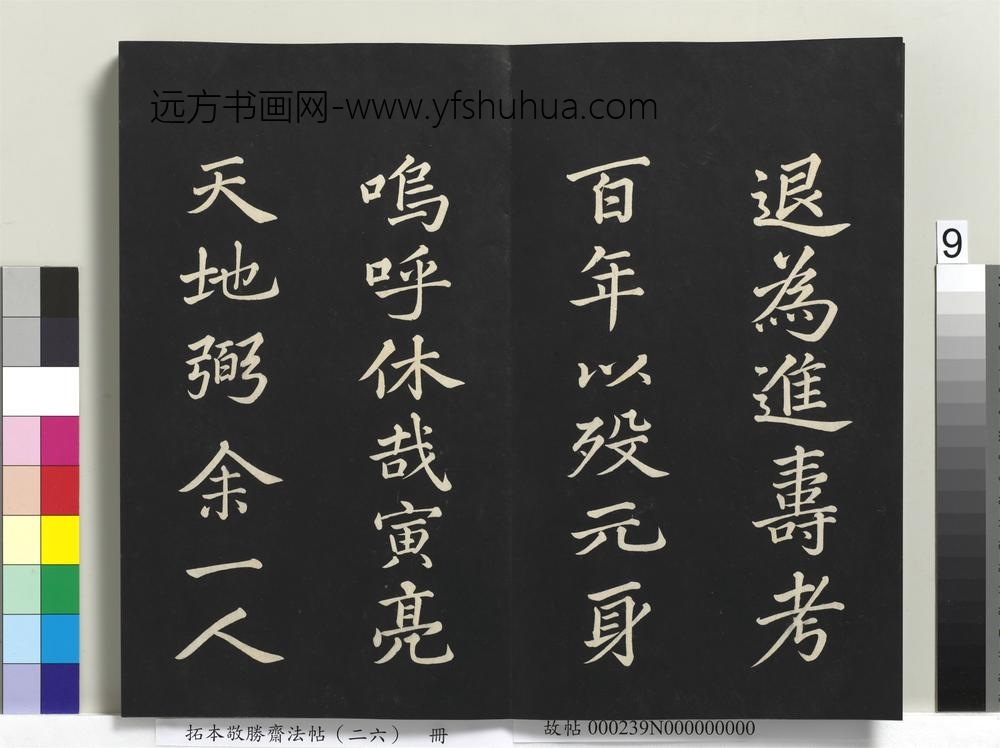 远方书画网-www.yfshuhua.com
退為進壽考
百年以歿元身
嗚呼休哉寅亮
天地弼余一人
9
拓本敬勝齋法帖（二六） 冊
故帖 000239N000000000